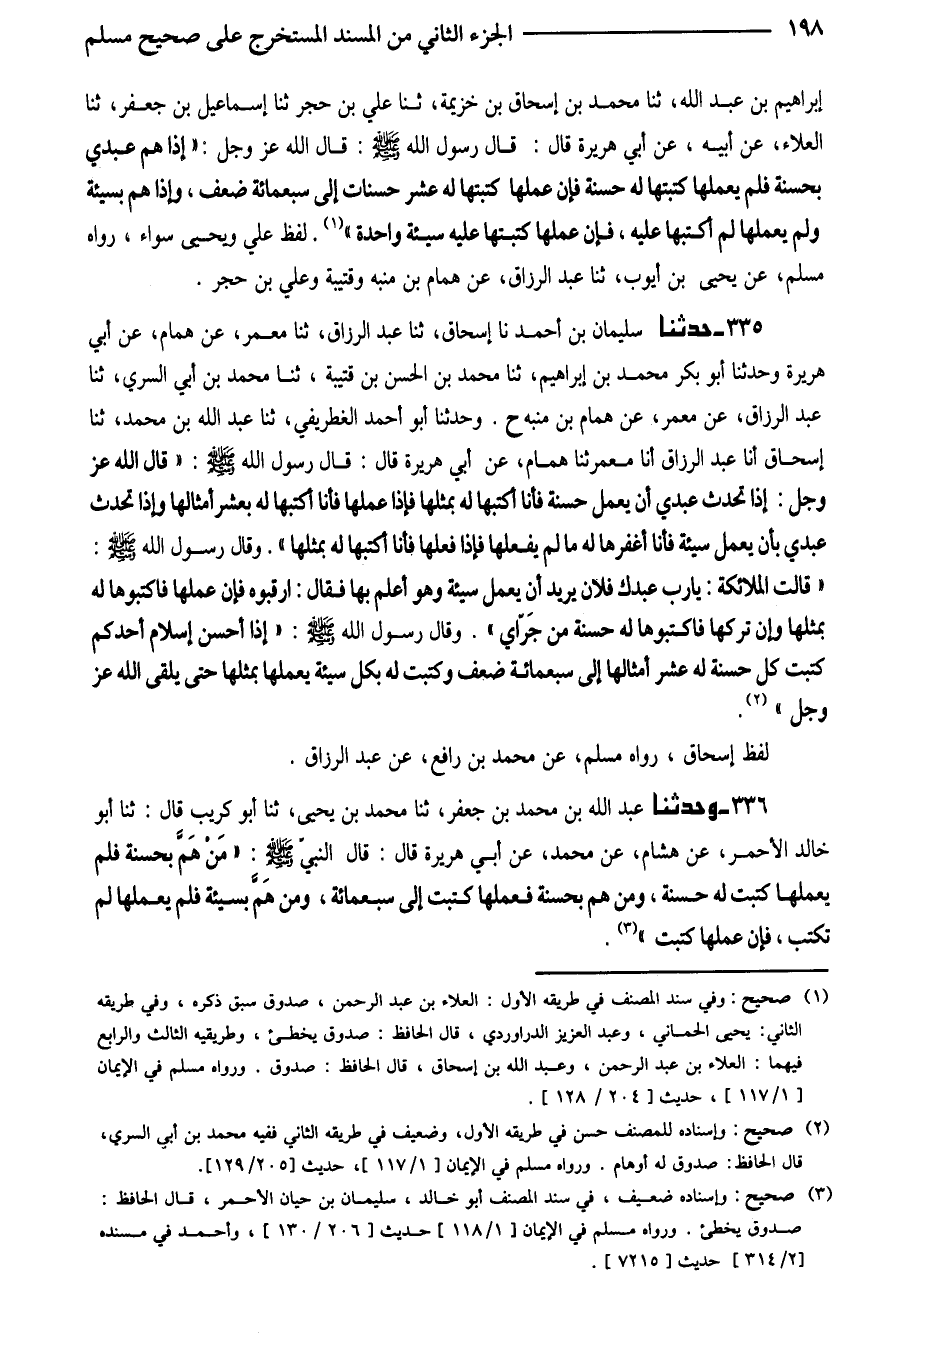 ١٩٨ ــــــــــــــــ الجزء الثاني من المسند المستخرج على صحيح مسلم
إبراهيم بن عبد الله، ثنا محمد بن إسحاق بن خزيمة، ثنا علي بن حجر ثنا إسماعيل بن جعفر، ثنا
العلاء، عن أبيه ، عن أبي هريرة قال : قال رسول الله ﷺ : قال الله عز وجل :« إذا هم عبدي
بحسنة فلم يعملها كتبتها له حسنة فإن عملها كتبتها له عشر حسنات إلى سبعمائة ضعف ، وإذا هم بسيئة
ولم يعملها لم أكتبها عليه ، فإن عملها كتبتها عليه سيئة واحدة »(١) . لفظ علي ويحيى سواء ، رواه
مسلم، عن يحيى بن أيوب، ثنا عبد الرزاق، عن همام بن منبه وقتيبة وعلي بن حجر .
٣٣٥ـحدثنا سليمان بن أحمد نا إسحاق، ثنا عبد الرزاق، ثنا معمر، عن همام، عن أبي
هريرة وحدثنا أبو بكر محمد بن إبراهيم، ثنا محمد بن الحسن بن قتيبة ، ثنا محمد بن أبي السري، ثنا
عبد الرزاق، عن معمر، عن همام بن منبه ح . وحدثنا أبو أحمد الغطريفي، ثنا عبد الله بن محمد، ثنا
إسحاق أنا عبد الرزاق أنا معمرثنا همام، عن أبي هريرة قال : قال رسول الله ﷺ : « قال الله عز
وجل : إذا تحدث عبدي أن يعمل حسنة فأنا أكتبها له بمثلها فإذا عملها فأنا أكتبها له بعشر أمثالها وإذا تحدث
عبدي بأن يعمل سيئة فأنا أغفرها له ما لم يفعلها فإذا فعلها فأنا أكتبها له بمثلها» . وقال رسول الله ﷺ :
« قالت الملائكة : يارب عبدك فلان يريد أن يعمل سيئة وهو أعلم بها فقال : ارقبوه فإن عملها فاكتبوها له
بمثلها وإن تركها فاكتبوها له حسنة من جَرّاي» . وقال رسول الله ﷺ : « إذا أحسن إسلام أحدكم
كتبت كل حسنة له عشر أمثالها إلى سبعمائة ضعف وكتبت له بكل سيئة يعملها بمثلها حتى يلقى الله عز
وجل » (٢).
لفظ إسحاق ، رواه مسلم، عن محمد بن رافع، عن عبد الرزاق .
٣٣٦ـوحدثنا عبد الله بن محمد بن جعفر، ثنا محمد بن يحيى، ثنا أبو كريب قال : ثنا أبو
خالد الأحمر، عن هشام، عن محمد، عن أبي هريرة قال : قال النبيّ ﷺ : « مَنْ هَمَّ بحسنة فلم
يعملها كتبت له حسنة ، ومن هم بحسنة فعملها كتبت إلى سبعمائة ، ومن هَمَّ بسيئة فلم يعملها لم
تكتب ، فإن عملها كتبت »(٣) .
(١) صحيح : وفي سند المصنف في طريقه الأول : العلاء بن عبد الرحمن ، صدوق سبق ذكره ، وفي طريقه
الثاني: يحيى الحماني ، وعبد العزيز الدراوردي ، قال الحافظ : صدوق يخطئ ، وطريقيه الثالث والرابع
فيهما : العلاء بن عبد الرحمن ، وعبد الله بن إسحاق ، قال الحافظ : صدوق . ورواه مسلم في الإيمان
[ ١/ ١١٧ ] ، حديث [ ٢٠٤ / ١٢٨ ] .
(٢) صحيح : وإسناده للمصنف حسن في طريقه الأول، وضعيف في طريقه الثاني ففيه محمد بن أبي السري،
قال الحافظ: صدوق له أوهام . ورواه مسلم في الإيمان [ ١/ ١١٧ ]، حديث [٢٠٥/ ١٢٩].
(٣) صحيح : وإسناده ضعيف ، في سند المصنف أبو خالد ، سليمان بن حيان الأحمر ، قال الحافظ :
صدوق يخطئ . ورواه مسلم في الإيمان [ ١/ ١١٨ ] حديث [ ٢٠٦ / ١٣٠ ] ، وأحمد في مسنده
[٢/ ٣١٤ ] حديث [ ٧٢١٥ ] .